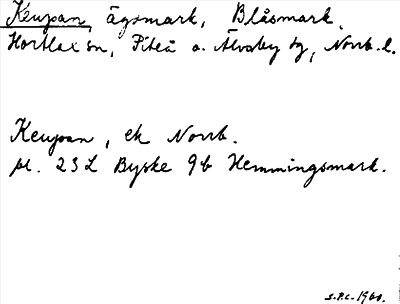 Keupan, ägomark, Blåsmark,
Hortlax sn, Piteå o. Älvsby tg, Norrb. l.
Keupan, ek Norrb.
bl. 23L Byske 9b Hemmingsmark.
S.P.C. 1960.